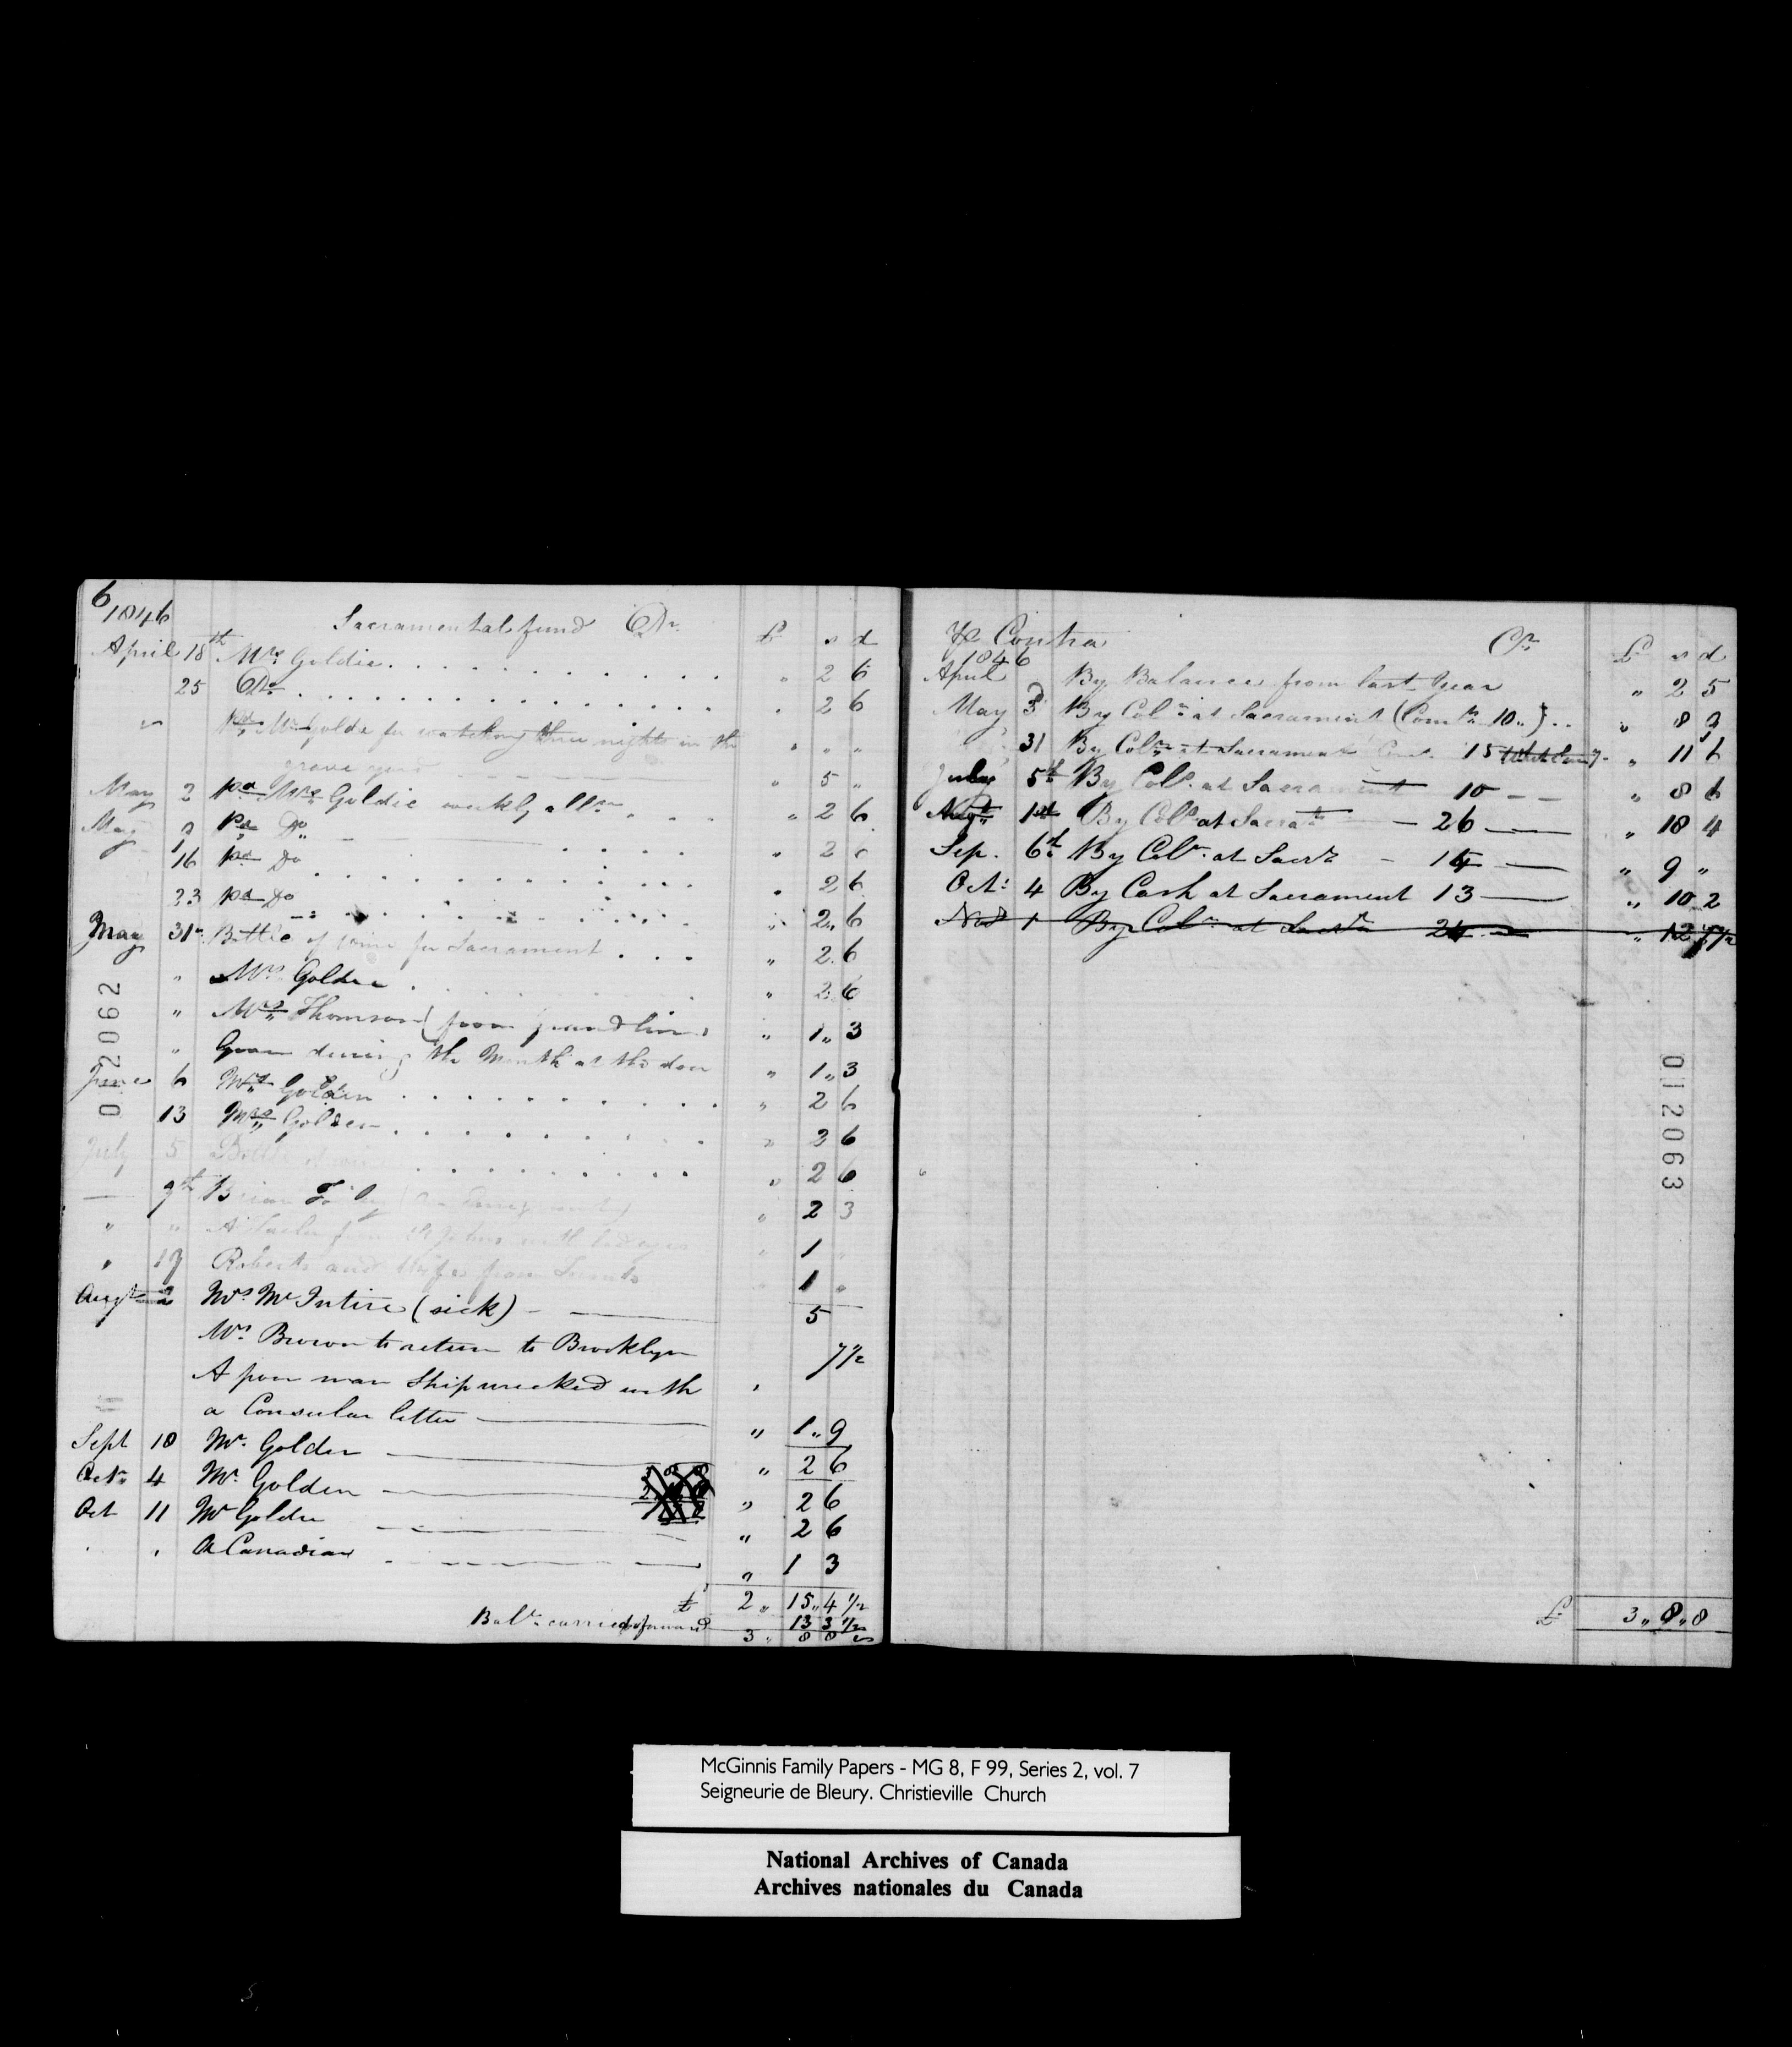 6
1846
Sacramental fund Dr.
£ s d
April 18th Mrs. Goldie " 2 6
25 Do " 2 6
" pd Mr Goldie for watching three nights in the " " "
grave yard " 5 "
May 2 pd Mrs. Goldie weekly allce " 2 6
May 9 pd Do " 2 6
16 pd Do " 2 6
23 pd Do " 2 6
May 31 Bottle of wine for Sacrament " 2 6
" Mrs. Golden " 2 6
" Mrs. Thomson (poor " 1 " 3
" Given during the Month at the door " 1 " 3
June 6 Mrs. Golden " 2 6
13 Mrs. Golden " 2 6
July 5 Bottle of wine " 2 6
— 9th Brian " 2 3
" " A Sailor from St Johns with bad eyes " 1 "
" 17 Roberts and Wife from " 1 "
Augt 2 Mrs. McIntire (sick) — 5
Mrs. Brown to return to Brooklyn 7 1/2
A poor man Shipwrecked with "
a Consular letter — " 1 " 9
Sept 18 Mr. Golden — " 2 6
Oct. 4 Mr. Golden — " 2 6
Oct 11 Mr Golden — " 2 6
" " A Canadian — " 1 3
£ 2 " 15 " 4 1/2
Balce carried forward 13 3 1/2
3 " 8 8
012062
Pr Contra Cr.
1846
£ s d
April By Balance from last Year " 2 5
May 3 By Coln at Sacrament (Comts 10 ") " 8 3
31 By Coln at Sacrament Com. 15 " 11 6
July 5th By Coln at Sacrament 10 — " 8 6
Augt 1st By Coln at Sacrat — 26 — " 18 4
Sep. 6th By Coln at Sacrt — 14 — " 9 "
Oct. 4 By Cash at Sacrament 13 — " 10 2
Nov 1 By Coln at Sacrt 24 — " 12 7 1/2
012063
£ 3 " 8 " 8
McGinnis Family Papers - MG 8, F 99, Series 2, vol. 7
Seigneurie de Bleury. Christieville Church
National Archives of Canada
Archives nationales du Canada